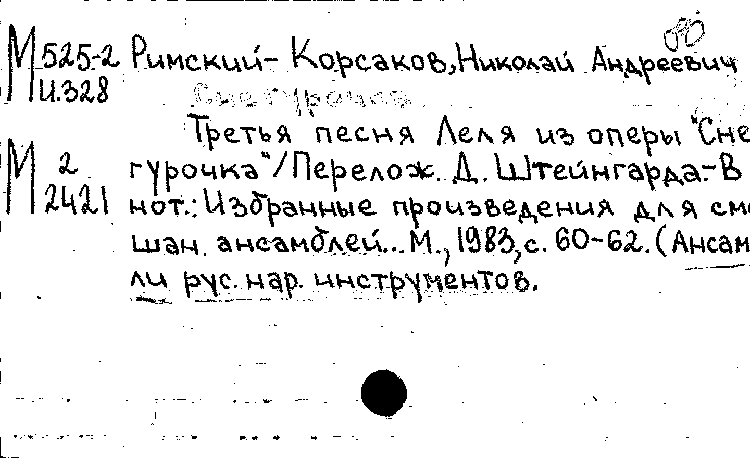 М 525-2 Римский-Корсаков, Николай Андреевич
И.328 Снегурочка
Третья песня Леля из оперы "Сне
М 2 гурочка"/Перелож. Д. Штейнгарда.-В
2421 нот.: Избранные произведения для сме
шан. ансамблей... М., 1983, с. 60-62. (Ансам
ли рус. нар. инструментов.